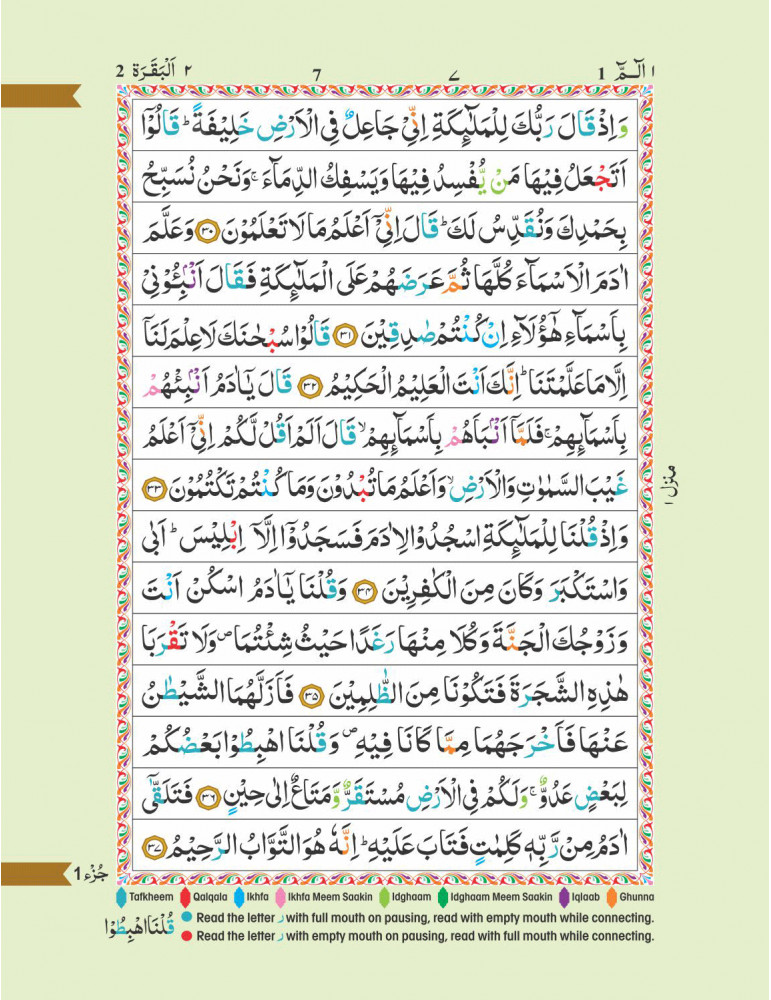 ١ الٓـمّٓ 1 ٧ 7 ٢ اَلْبَقَرَة 2
وَاِذْ قَالَ رَبُّكَ لِلْمَلٰٓئِكَةِ اِنِّىْ جَاعِلٌ فِى الْاَرْضِ خَلِيْفَةً ؕ قَالُوْٓا
اَتَجْعَلُ فِيْهَا مَنْ يُّفْسِدُ فِيْهَا وَيَسْفِكُ الدِّمَآءَ ۚ وَنَحْنُ نُسَبِّحُ
بِحَمْدِكَ وَنُقَدِّسُ لَكَ ؕ قَالَ اِنِّىْٓ اَعْلَمُ مَا لَا تَعْلَمُوْنَ ۝٣٠ وَعَلَّمَ
اٰدَمَ الْاَسْمَآءَ كُلَّهَا ثُمَّ عَرَضَهُمْ عَلَى الْمَلٰٓئِكَةِ فَقَالَ اَنْۢبِـُٔوْنِىْ
بِاَسْمَآءِ هٰٓؤُلَآءِ اِنْ كُنْتُمْ صٰدِقِيْنَ ۝٣١ قَالُوْا سُبْحٰنَكَ لَا عِلْمَ لَنَآ
اِلَّا مَا عَلَّمْتَنَا ؕ اِنَّكَ اَنْتَ الْعَلِيْمُ الْحَكِيْمُ ۝٣٢ قَالَ يٰٓاٰدَمُ اَنْۢبِئْهُمْ
بِاَسْمَآئِهِمْ ۚ فَلَمَّآ اَنْۢبَاَهُمْ بِاَسْمَآئِهِمْ ۙ قَالَ اَلَمْ اَقُلْ لَّكُمْ اِنِّىْٓ اَعْلَمُ
غَيْبَ السَّمٰوٰتِ وَالْاَرْضِ ۙ وَاَعْلَمُ مَا تُبْدُوْنَ وَمَا كُنْتُمْ تَكْتُمُوْنَ ۝٣٣
وَاِذْ قُلْنَا لِلْمَلٰٓئِكَةِ اسْجُدُوْا لِاٰدَمَ فَسَجَدُوْٓا اِلَّآ اِبْلِيْسَ ؕ اَبٰى
وَاسْتَكْبَرَ وَكَانَ مِنَ الْكٰفِرِيْنَ ۝٣٤ وَقُلْنَا يٰٓاٰدَمُ اسْكُنْ اَنْتَ
وَزَوْجُكَ الْجَنَّةَ وَكُلَا مِنْهَا رَغَدًا حَيْثُ شِئْتُمَا ۪ وَلَا تَقْرَبَا
هٰذِهِ الشَّجَرَةَ فَتَكُوْنَا مِنَ الظّٰلِمِيْنَ ۝٣٥ فَاَزَلَّهُمَا الشَّيْطٰنُ
عَنْهَا فَاَخْرَجَهُمَا مِمَّا كَانَا فِيْهِ ۪ وَقُلْنَا اهْبِطُوْا بَعْضُكُمْ
لِبَعْضٍ عَدُوٌّ ۚ وَلَكُمْ فِى الْاَرْضِ مُسْتَقَرٌّ وَّمَتَاعٌ اِلٰى حِيْنٍ ۝٣٦ فَتَلَقّٰٓى
اٰدَمُ مِنْ رَّبِّهٖ كَلِمٰتٍ فَتَابَ عَلَيْهِ ؕ اِنَّهٗ هُوَ التَّوَّابُ الرَّحِيْمُ ۝٣٧
منزل ١
جُزْء 1
Tafkheem Qalqala Ikhfa Ikhfa Meem Saakin Idghaam Idghaam Meem Saakin Iqlaab Ghunna
قُلْنَا اهْبِطُوْا
Read the letter ر with full mouth on pausing, read with empty mouth while connecting.
Read the letter ر with empty mouth on pausing, read with full mouth while connecting.